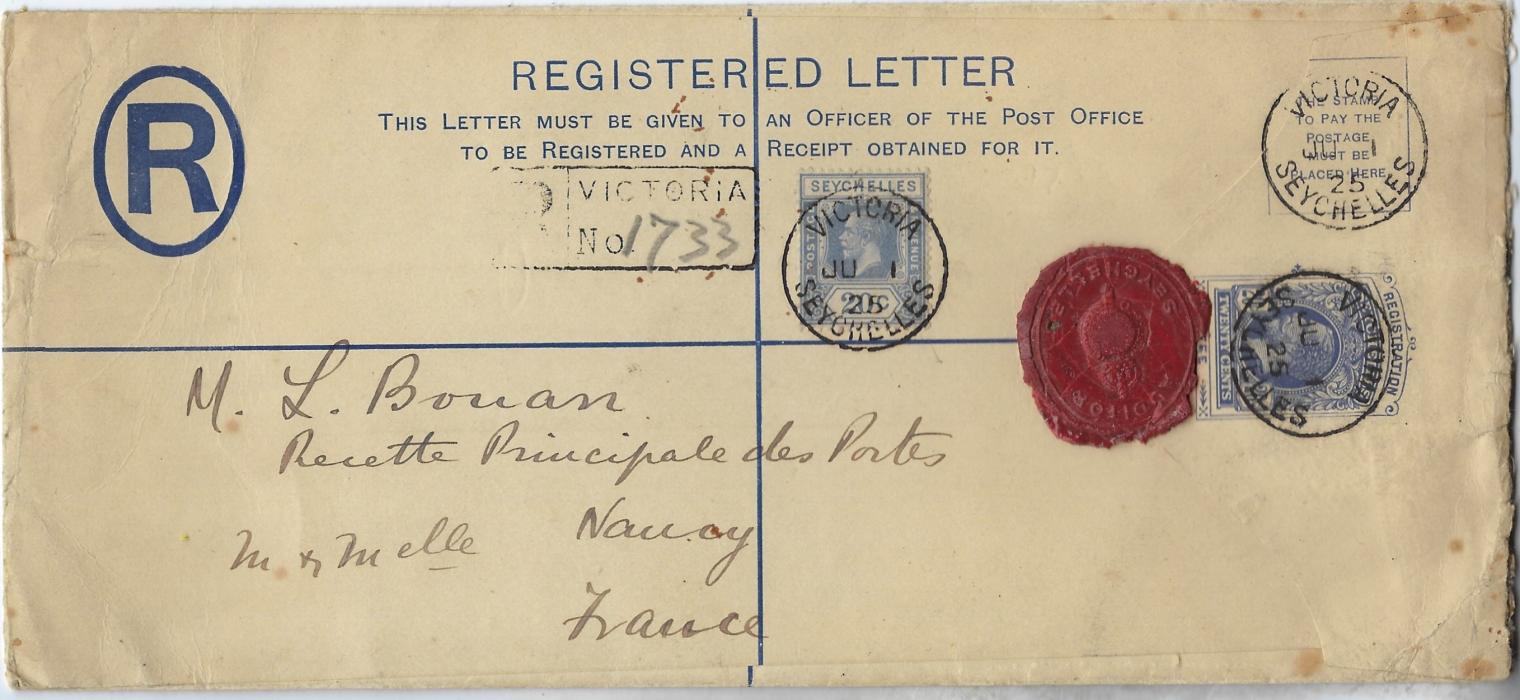 R
REGISTERED LETTER
THIS LETTER MUST BE GIVEN TO AN OFFICER OF THE POST OFFICE
TO BE REGISTERED AND A RECEIPT OBTAINED FOR IT.
THE STAMP
TO PAY THE
POSTAGE
MUST BE
PLACED HERE
VICTORIA
JU 1
25
SEYCHELLES
R VICTORIA
No 1733
SEYCHELLES
POSTAGE REVENUE
20c
VICTORIA
JU 1
25
SEYCHELLES
SEYCHELLES
AUDITOR
REGISTRATION
FEE
TWENTY CENTS
VICTORIA
JU 1
25
SEYCHELLES
M. L. Bouan
Recette Principale des Postes
Nancy
M & Melle
France